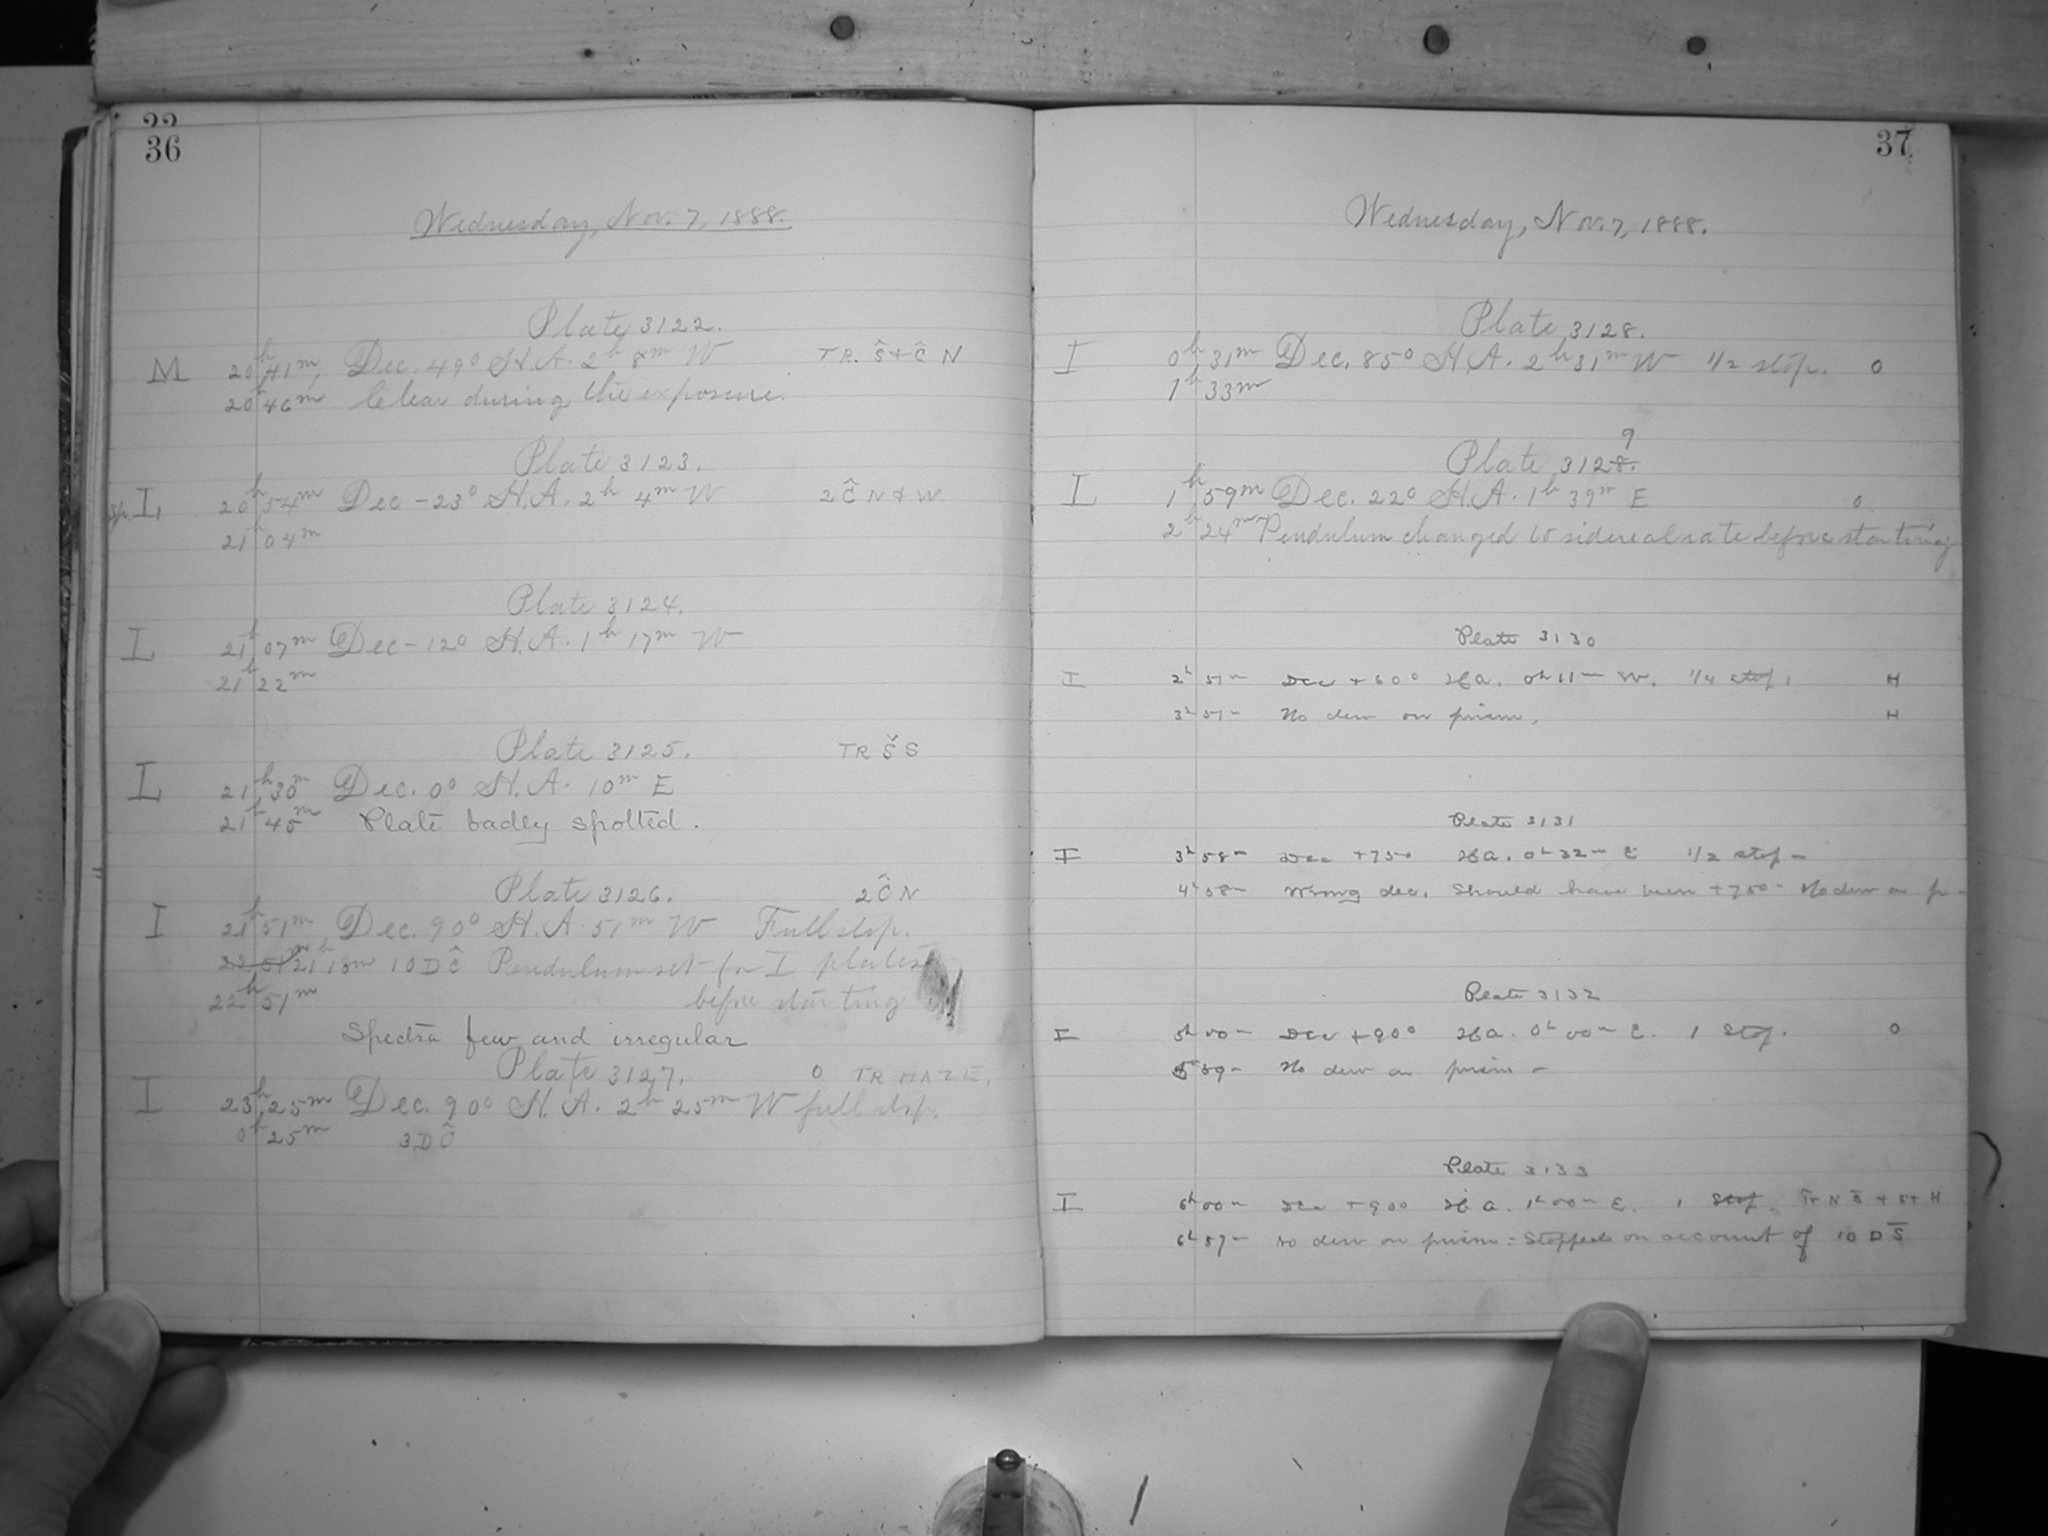 22
36
Wednesday, Nov. 7, 1888.
Plate 3122.
M 20h 41m Dec. 49° H.A. 2h 8m W TR. Ŝ + Ĉ N
20h 46m Clear during the exposure.
Plate 3123.
Sp. L 20h 54m Dec -23° H.A. 2h 4m W 2 Ĉ N & W
21h 04m
Plate 3124.
L 21h 07m Dec -12° H.A. 1h 17m W
21h 22m
Plate 3125. TR Š S
L 21h 30m Dec. 0° H.A. 10m E
21h 45m Plate badly spotted.
Plate 3126. 2 Ĉ N
I 21h 51m Dec. 90° H.A. 51m W Full stop.
22 51 21h 10m 10 D Ĉ Pendulum set for I plates
22h 51m before starting
Spectra few and irregular
Plate 3127. 0 TR HAZE.
I 23h 25m Dec. 90° H.A. 2h 25m W full stop.
0h 25m 3 D Ĉ
37
Wednesday, Nov. 7, 1888.
Plate 3128.
I 0h 31m Dec. 85° H.A. 2h 31m W 1/2 stop. 0
1h 33m
9
Plate 3128.
L 1h 59m Dec. 22° H.A. 1h 39m E 0
2h 24m Pendulum changed to sidereal rate before starting
Plate 3130
I 2h 51m Dec +60° H.A. 0h 11m W. 1/4 stop. H
3h 51m No dew on prism. H
Plate 3131
I 3h 58m Dec +75° H.A. 0h 32m E 1/2 stop -
4h 58m Wrong dec. Should have been +75° - No dew on p-
Plate 3132
I 5h 00m Dec +90° H.A. 0h 00m E. 1 stop. 0
5h 59m No dew on prism -
Plate 3133
I 6h 00m Dec +90° H.A. 1h 00m E. 1 stop. Tr N S̄ + St H
6h 57m No dew on prism - Stopped on account of 10 D S̄